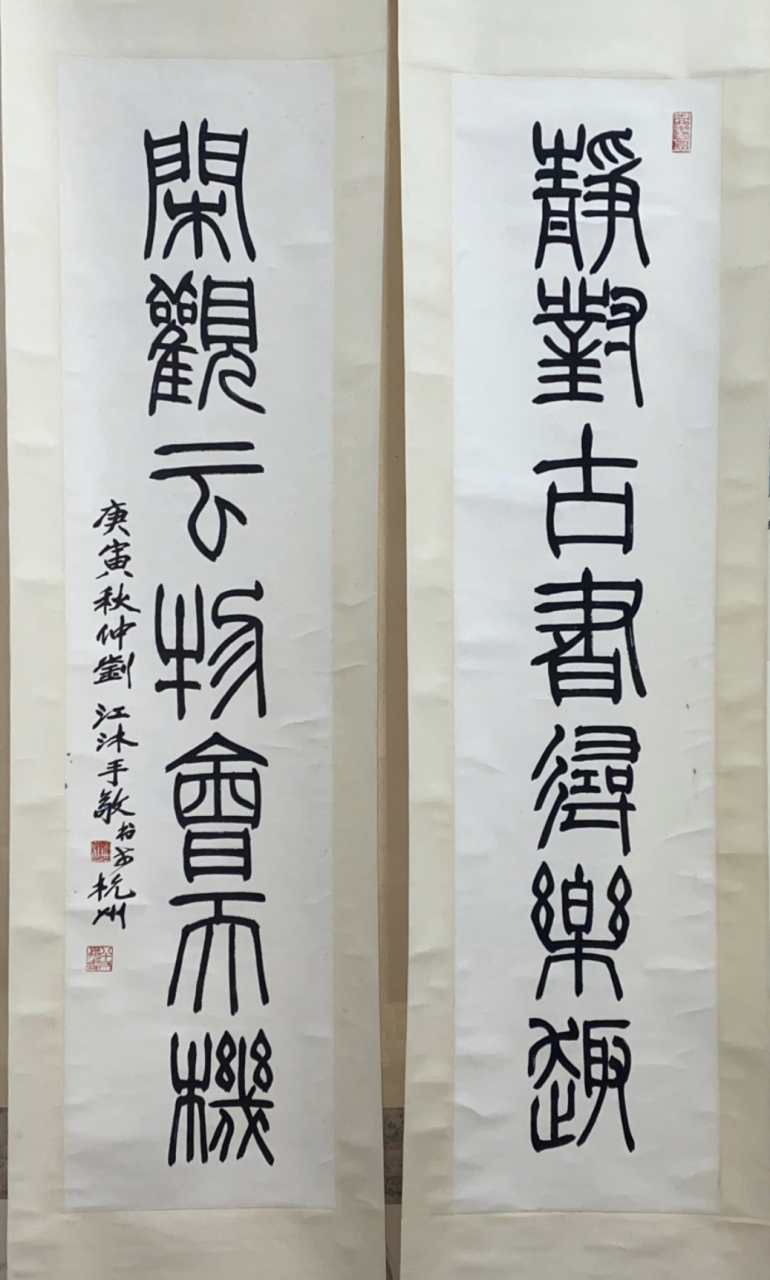 靜對古書尋樂趣
閑觀云物會天機
庚寅秋仲劉江沐手敬書於杭州